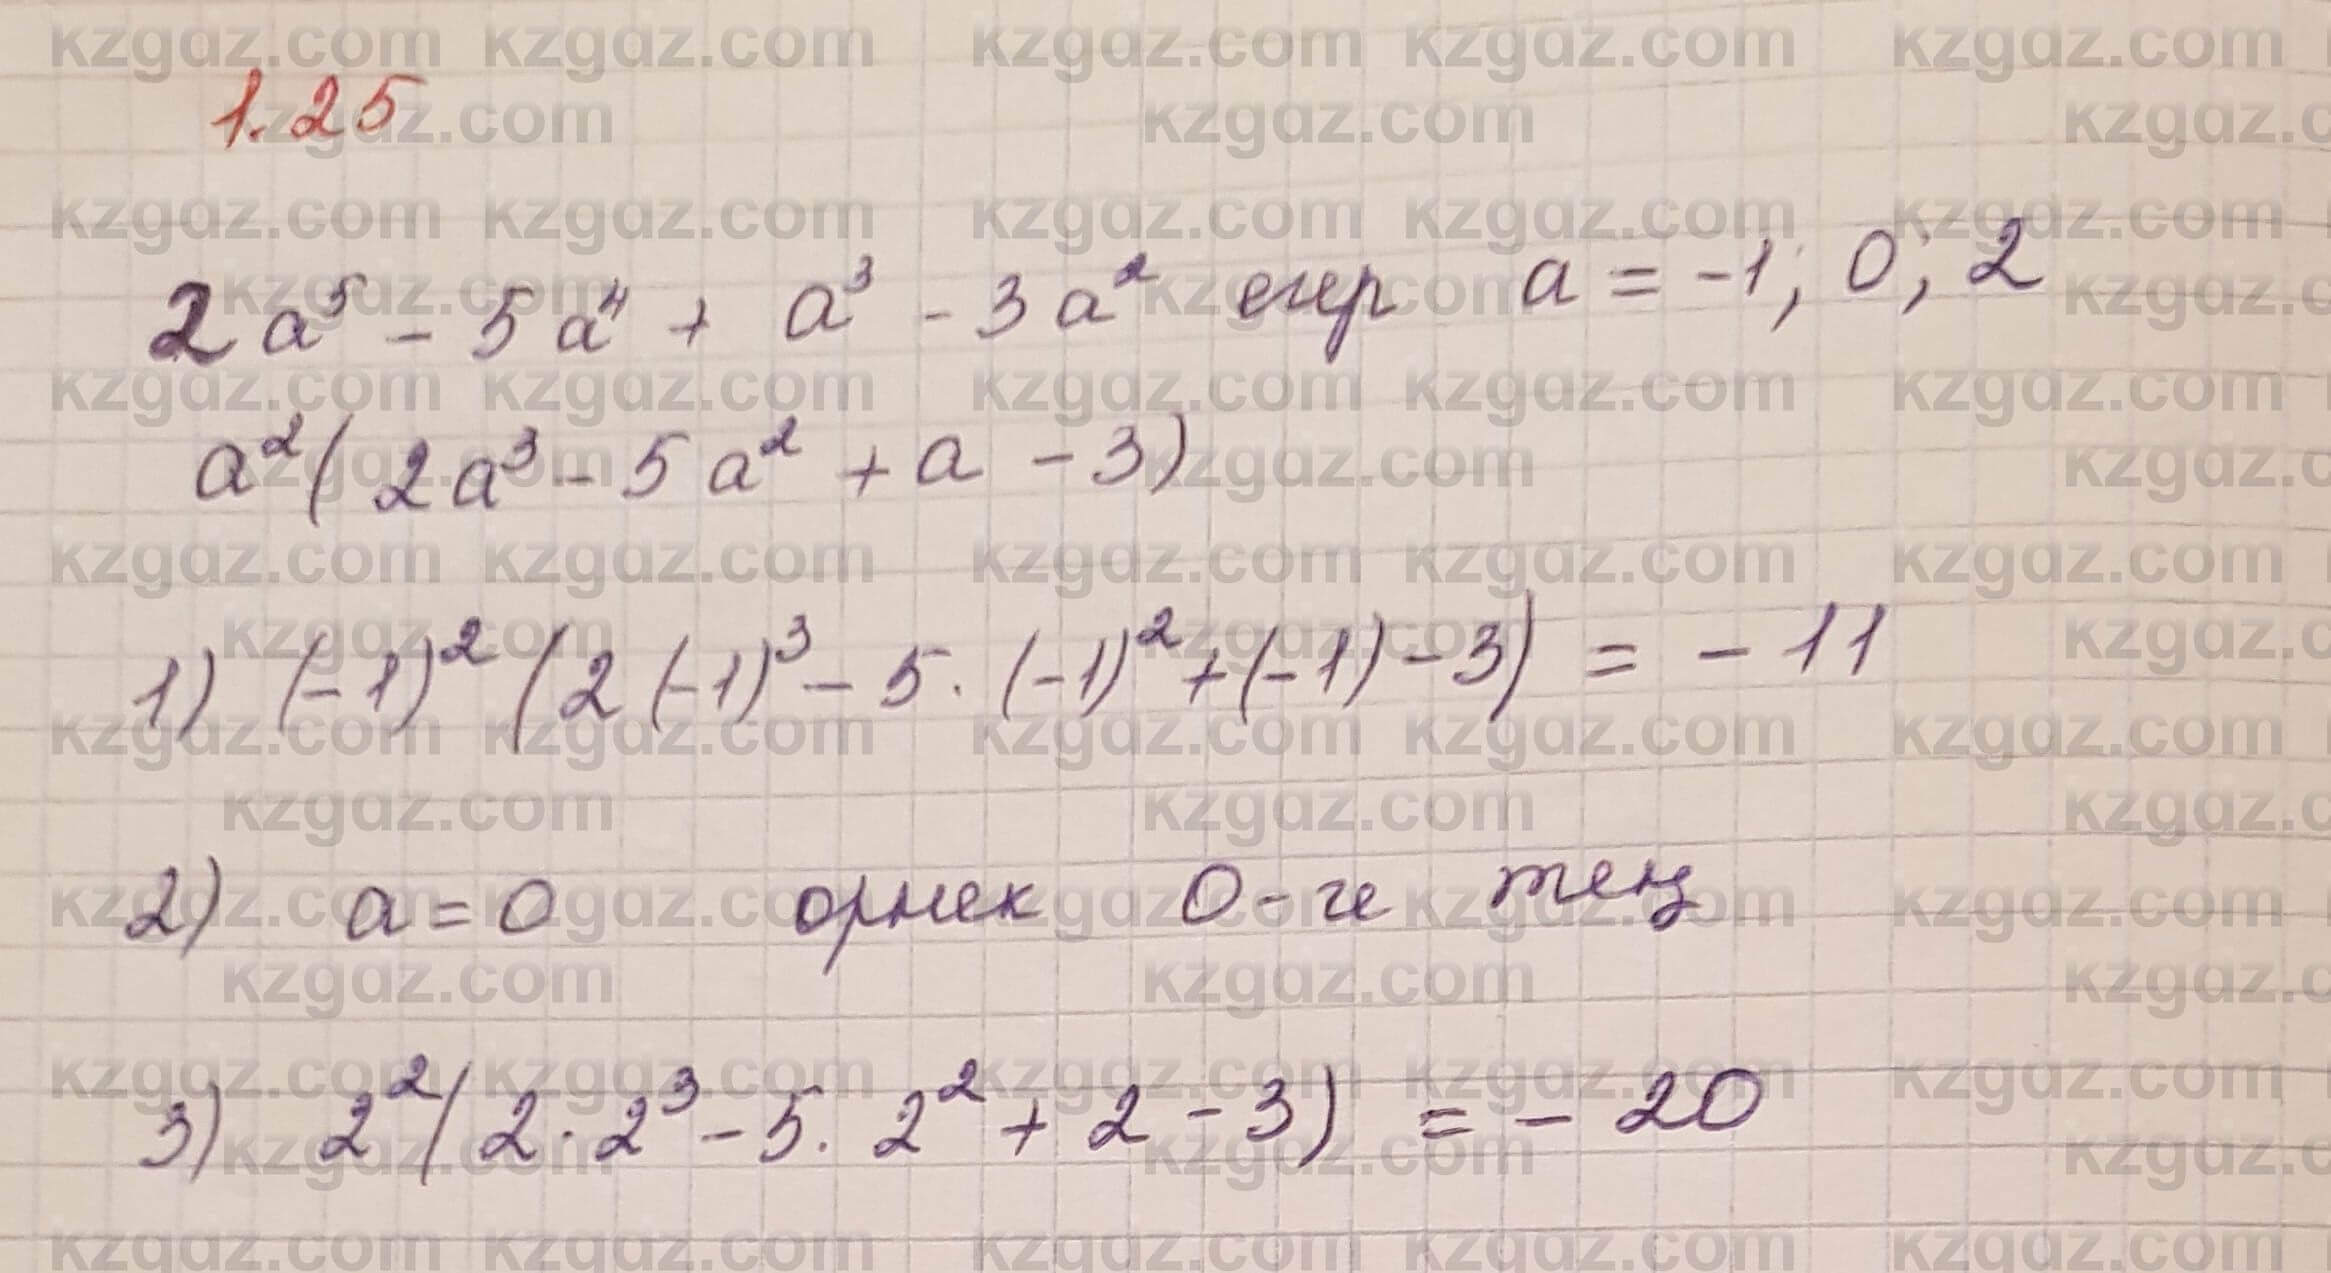 1.25
2a⁵ - 5a⁴ + a³ - 3a² егер a = -1; 0; 2
a²(2a³ - 5a² + a - 3)
1) (-1)² (2(-1)³ - 5·(-1)² + (-1) - 3) = -11
2) a = 0 өрнек 0-ге тең
3) 2²(2·2³ - 5·2² + 2 - 3) = -20
kzgdz.com